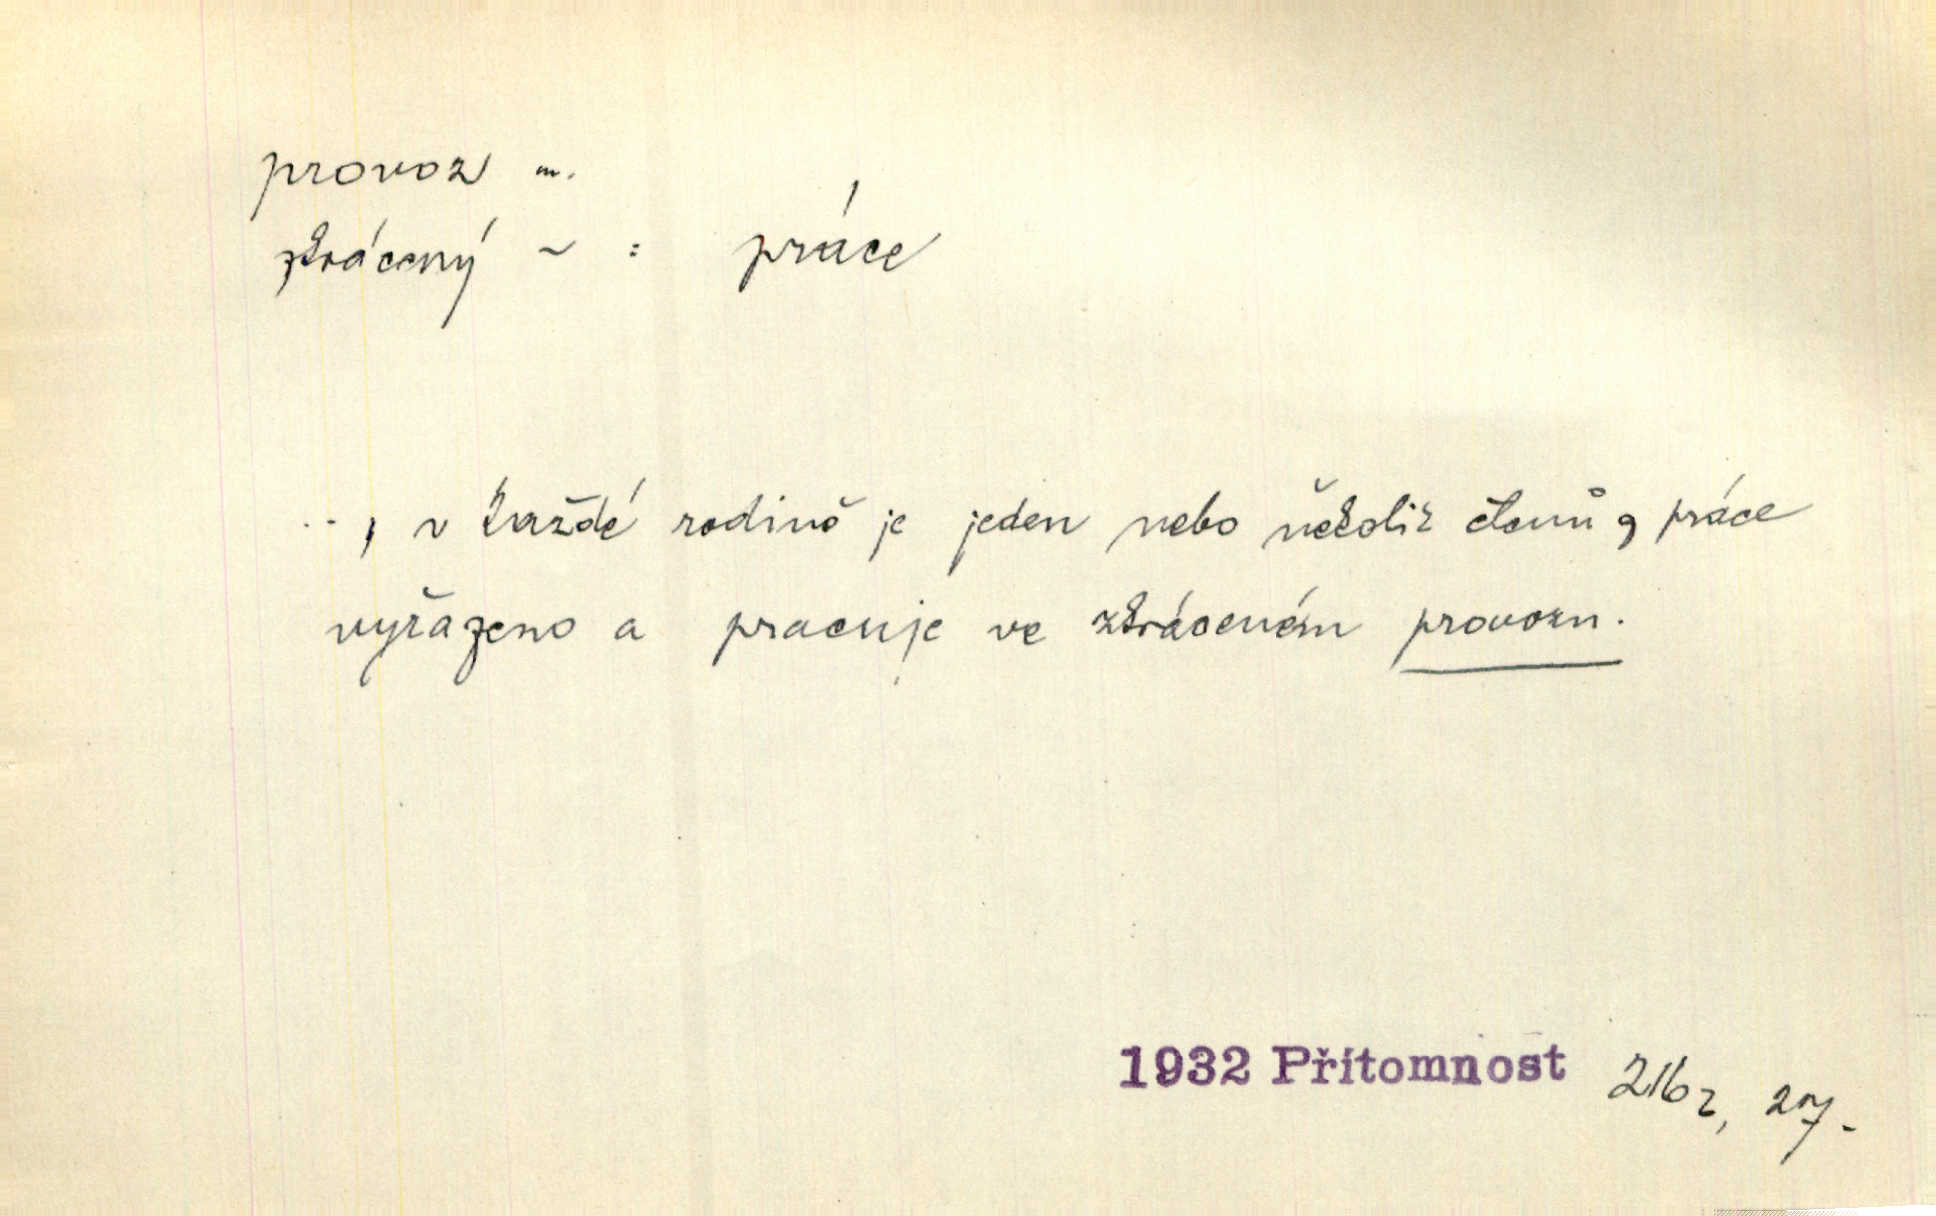 provoz m.
zkrácený ~ : práce
.., v každé rodině je jeden nebo několik členů z práce
vyřazeno a pracuje ve zkráceném provozu.
1932 Přítomnost 216₂, 27.